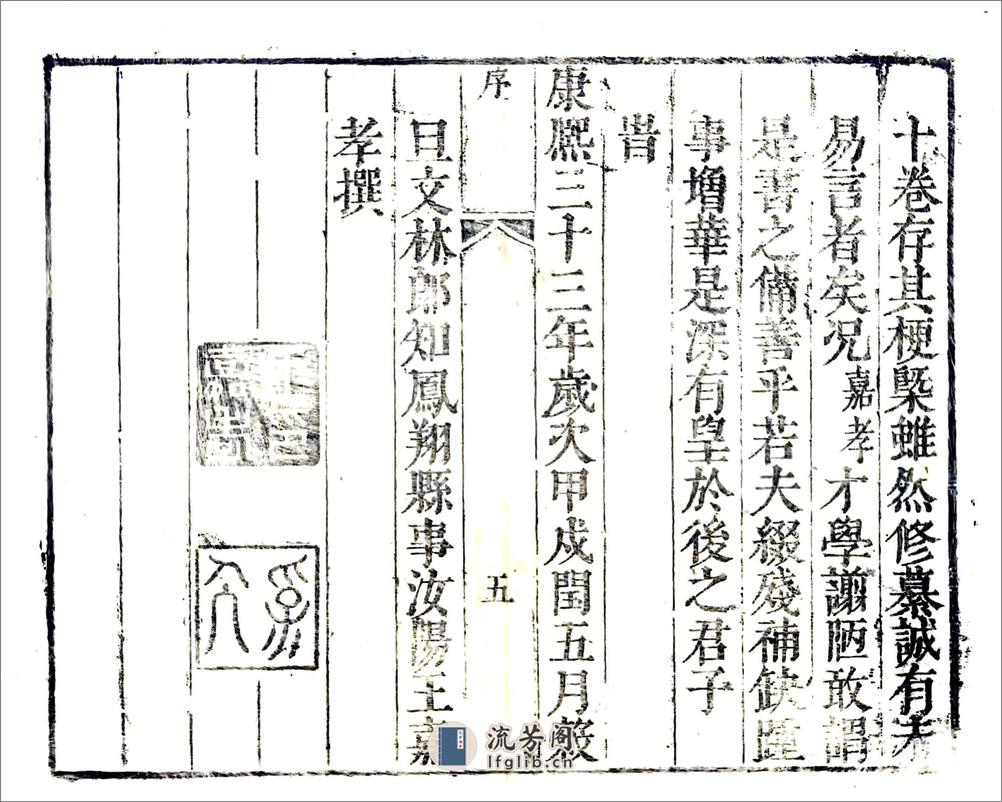 十卷存其梗槩雖然修纂誠有未
易言者矣况嘉孝才學謭陋敢謂
是書之備善乎若夫綴殘補缺踵
事增華是深有望於後之君子
旹
康熙三十三年歲次甲戍閏五月榖
序
五
旦文林郎知鳳翔縣事汝陽王嘉
孝撰
流芳阁
lfglib.cn